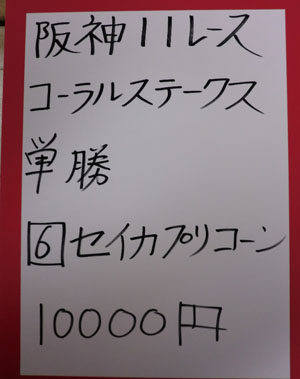 阪神11レース
コーラルステークス
単勝
6 セイカプリコーン
10000円